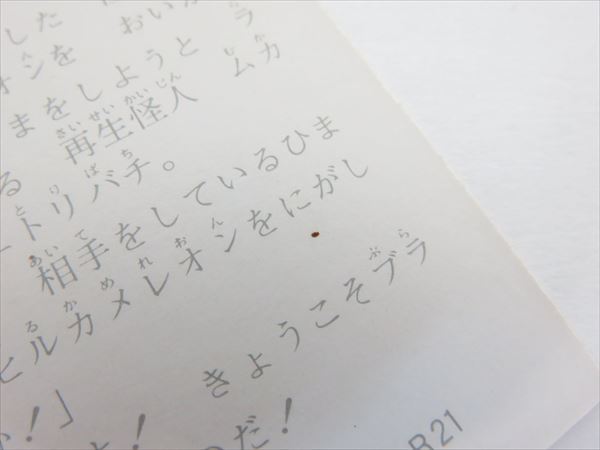 した おいか
オンを ラ
まをしようと
再生怪人 ムカ
る
トリバチ。
相手をしているひま
ヒルカメレオンをにがし
きょうこそブラ
か!」
だ!
R21